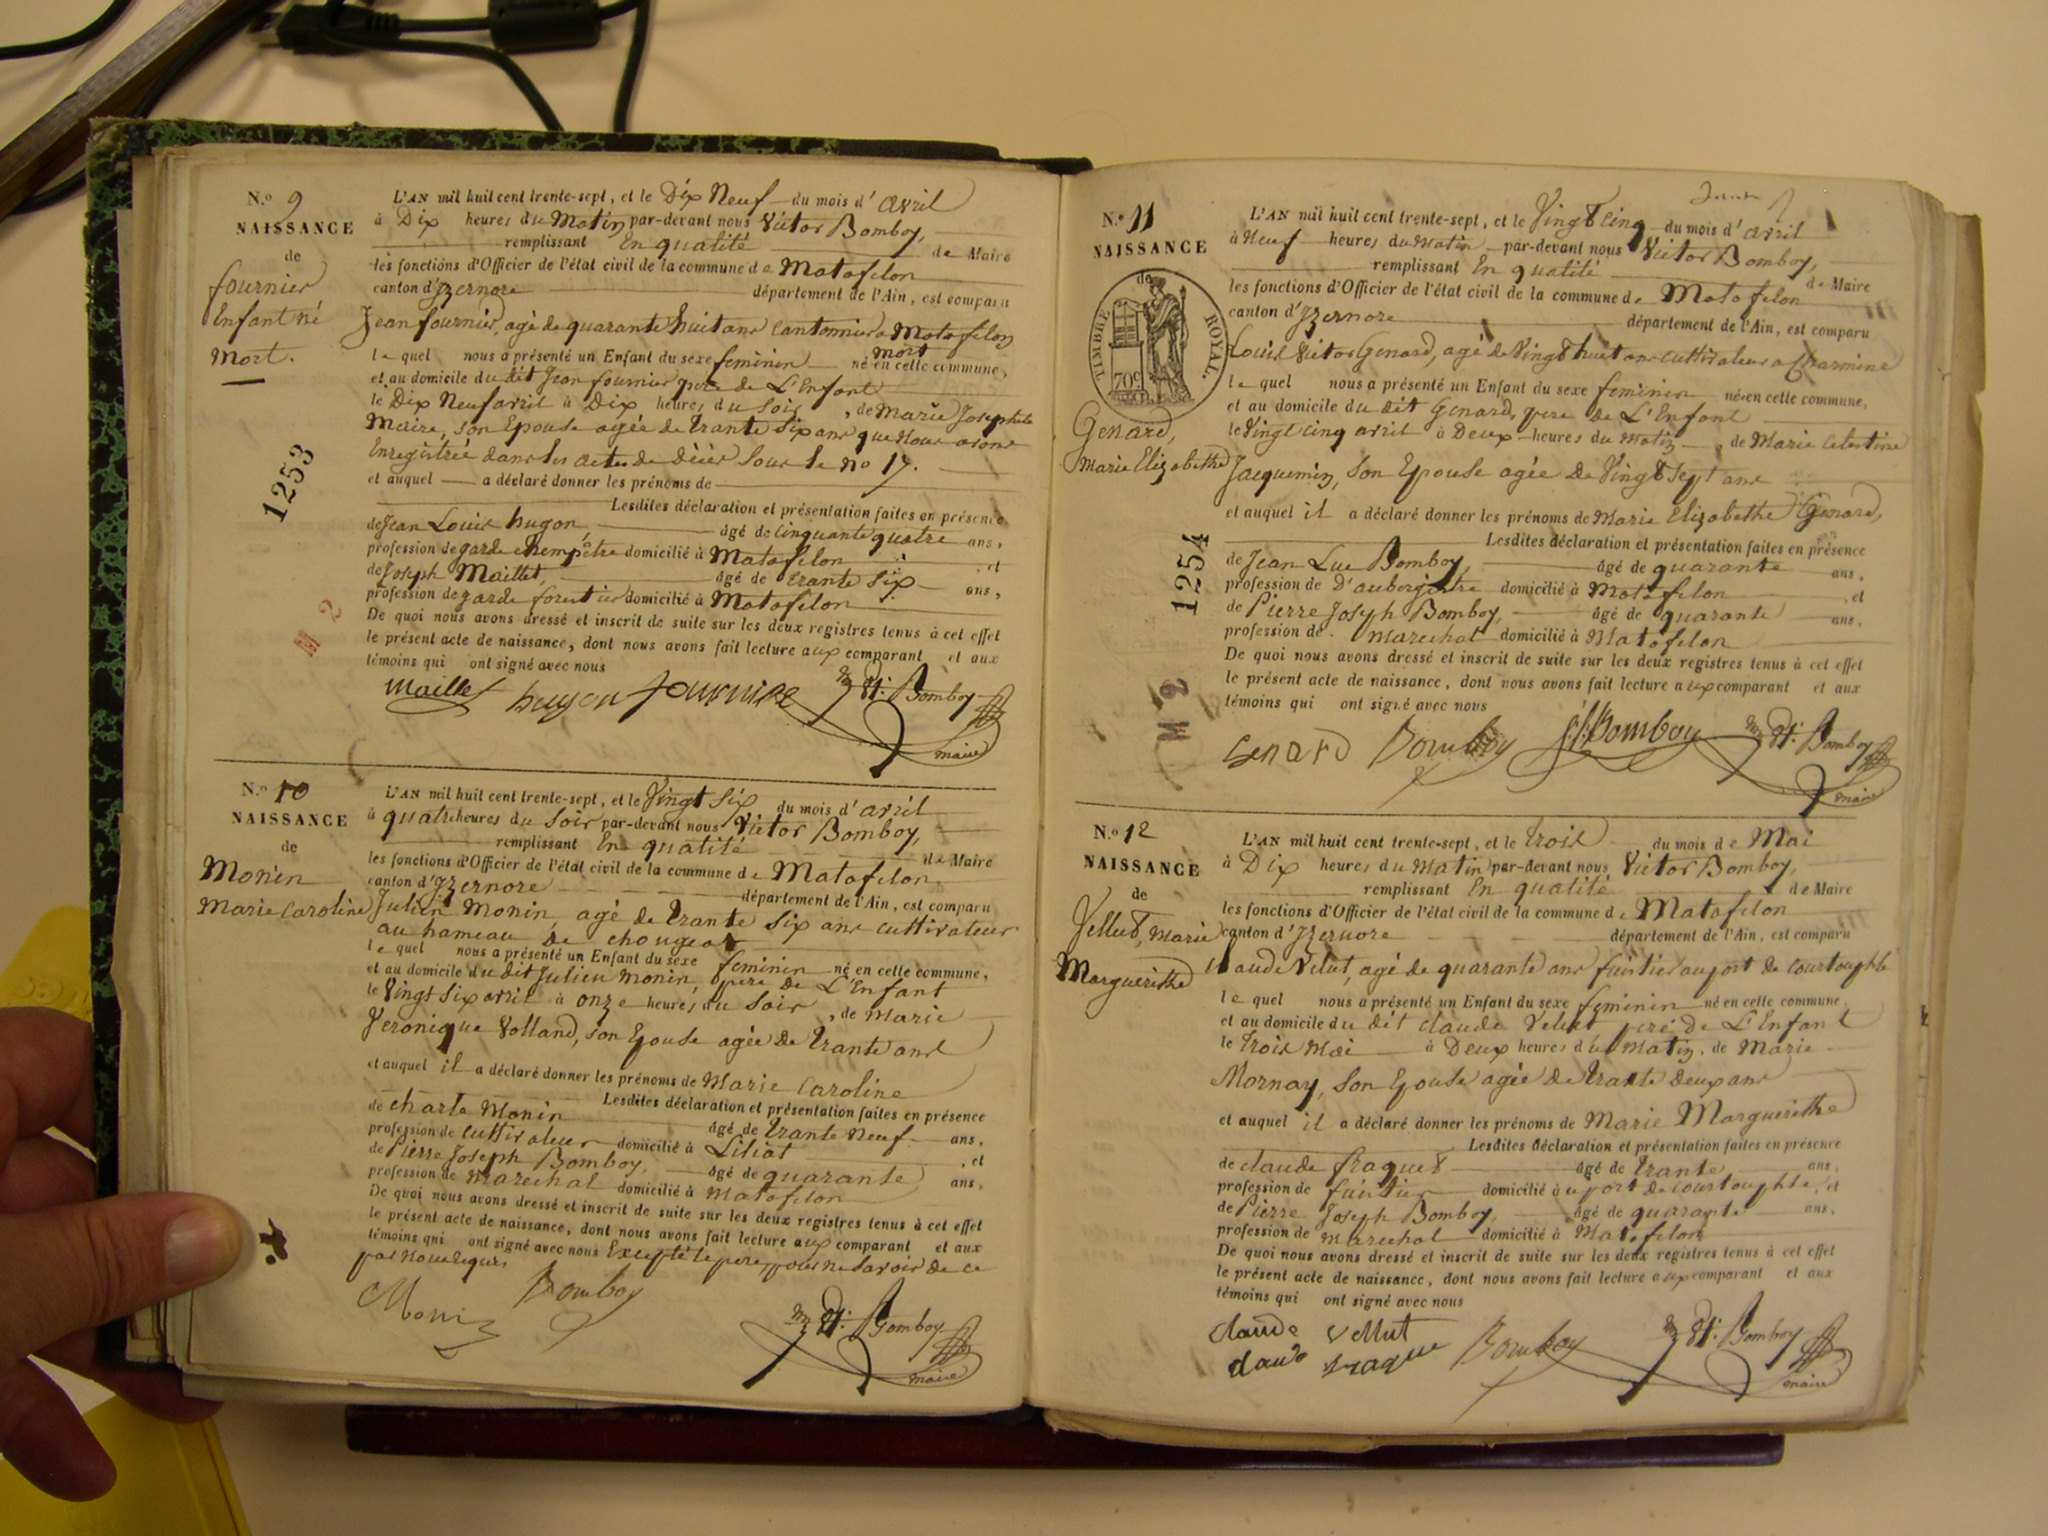 N.o 9
NAISSANCE
de
fournier
Enfant né
mort.
L'AN mil huit cent trente-sept, et le Dix Neuf du mois d'avril
à Dix heures du Matin par-devant nous Victor Bomboy,
remplissant En qualité de Maire
les fonctions d'Officier de l'état civil de la commune de Matafelon
canton d'Izernore département de l'Ain, est comparu
Jean fournier, agé de quarante huit ans cantonnier a Matafelon
le quel nous a présenté un Enfant du sexe feminin né mort en cette commune,
et au domicile du dit Jean fournier pere de L'Enfant
le Dix Neuf avril à Dix heures du Soir, de Marie Josephte
Maire, son Epouse agée de trante six ans que nous avons
Enregistrée dans les actes de décès sous le no 17.
et auquel a déclaré donner les prénoms de
Lesdites déclaration et présentation faites en présence
de Jean Louis hugon, âgé de cinquante quatre ans,
profession de garde chempêtre domicilié à Matafelon et
de Joseph Maillet, âgé de trante six ans,
profession de garde forestier domicilié à Matafelon
De quoi nous avons dressé et inscrit de suite sur les deux registres tenus à cet effet
le présent acte de naissance, dont nous avons fait lecture aux comparant et aux
témoins qui ont signé avec nous
Maillet hugon fournier Bomboy
maire
1253
M 2
N.o 10
NAISSANCE
de
Monin
Marie Caroline
L'AN mil huit cent trente-sept, et le Vingt six du mois d'avril
à quatre heures du soir par-devant nous Victor Bomboy,
remplissant En qualité de Maire
les fonctions d'Officier de l'état civil de la commune de Matafelon
canton d'Izernore département de l'Ain, est comparu
Julien Monin, agé de trante six ans cultivateur
au hameau de chougeat
le quel nous a présenté un Enfant du sexe feminin né en cette commune,
et au domicile du dit Julien monin, pere de L'Enfant
le Vingt six avril à onze heures du soir, de Marie
Veronique Volland, son Epouse agée de trante ans
et auquel il a déclaré donner les prénoms de Marie Caroline
Lesdites déclaration et présentation faites en présence
de charle Monin âgé de trante neuf ans,
profession de cultivateur domicilié à Liliat, et
de Pierre Joseph Bomboy, âgé de quarante ans,
profession de marechal domicilié à Matafelon
De quoi nous avons dressé et inscrit de suite sur les deux registres tenus à cet effet
le présent acte de naissance, dont nous avons fait lecture aux comparant et aux
témoins qui ont signé avec nous Excepté le pere, pour ne savoir de ce
par nous requis
Monin Bomboy Bomboy
maire
N.o 11
NAISSANCE
de
TIMBRE ROYAL.
70c
Genard,
Marie Elizabethe
L'AN mil huit cent trente-sept, et le Vingt cinq du mois d'avril
à Neuf heures du Matin par-devant nous Victor Bomboy,
remplissant En qualité de Maire
les fonctions d'Officier de l'état civil de la commune de Matafelon
canton d'Izernore département de l'Ain, est comparu
Louis Victor Genard, agé de Vingt huit ans cultivateur a Charmine
le quel nous a présenté un Enfant du sexe feminin né en cette commune,
et au domicile du dit Genard, pere de L'Enfant
le Vingt cinq avril à Deux heures du Matin, de Marie Celestine
Jacquemin, son Epouse agée de Vingt Sept ans
et auquel il a déclaré donner les prénoms de Marie Elizabethe Genard,
Lesdites déclaration et présentation faites en présence
de Jean Luc Bomboy, âgé de quarante ans,
profession de D'aubergiste domicilié à Matafelon, et
de Pierre Joseph Bomboy, âgé de quarante ans,
profession de marechal domicilié à Matafelon
De quoi nous avons dressé et inscrit de suite sur les deux registres tenus à cet effet
le présent acte de naissance, dont nous avons fait lecture aux comparant et aux
témoins qui ont signé avec nous
Genard Bomboy Bomboy Bomboy
maire
1254
M 2
N.o 12
NAISSANCE
de
Vellut, Marie
Marguerithe
L'AN mil huit cent trente-sept, et le trois du mois de Mai
à Dix heures du Matin par-devant nous Victor Bomboy,
remplissant En qualité de Maire
les fonctions d'Officier de l'état civil de la commune de Matafelon
canton d'Izernore département de l'Ain, est comparu
Claude Velut, agé de quarante ans fuistier au port de Courtouphle
le quel nous a présenté un Enfant du sexe feminin né en cette commune,
et au domicile du dit Claude Velut peré de L'Enfant
le trois Mai à Deux heures du Matin, de Marie
Mornay, son Epouse agée de trante deux ans
et auquel il a déclaré donner les prénoms de Marie Marguerithe
Lesdites déclaration et présentation faites en présence
de claude fraquet âgé de trante ans,
profession de fuistier domicilié à u port de courtouphle, et
de Pierre Joseph Bomboy, âgé de quarante ans,
profession de marechal domicilié à Matafelon
De quoi nous avons dressé et inscrit de suite sur les deux registres tenus à cet effet
le présent acte de naissance, dont nous avons fait lecture aux comparant et aux
témoins qui ont signé avec nous
claude vellut
Bomboy Bomboy
maire